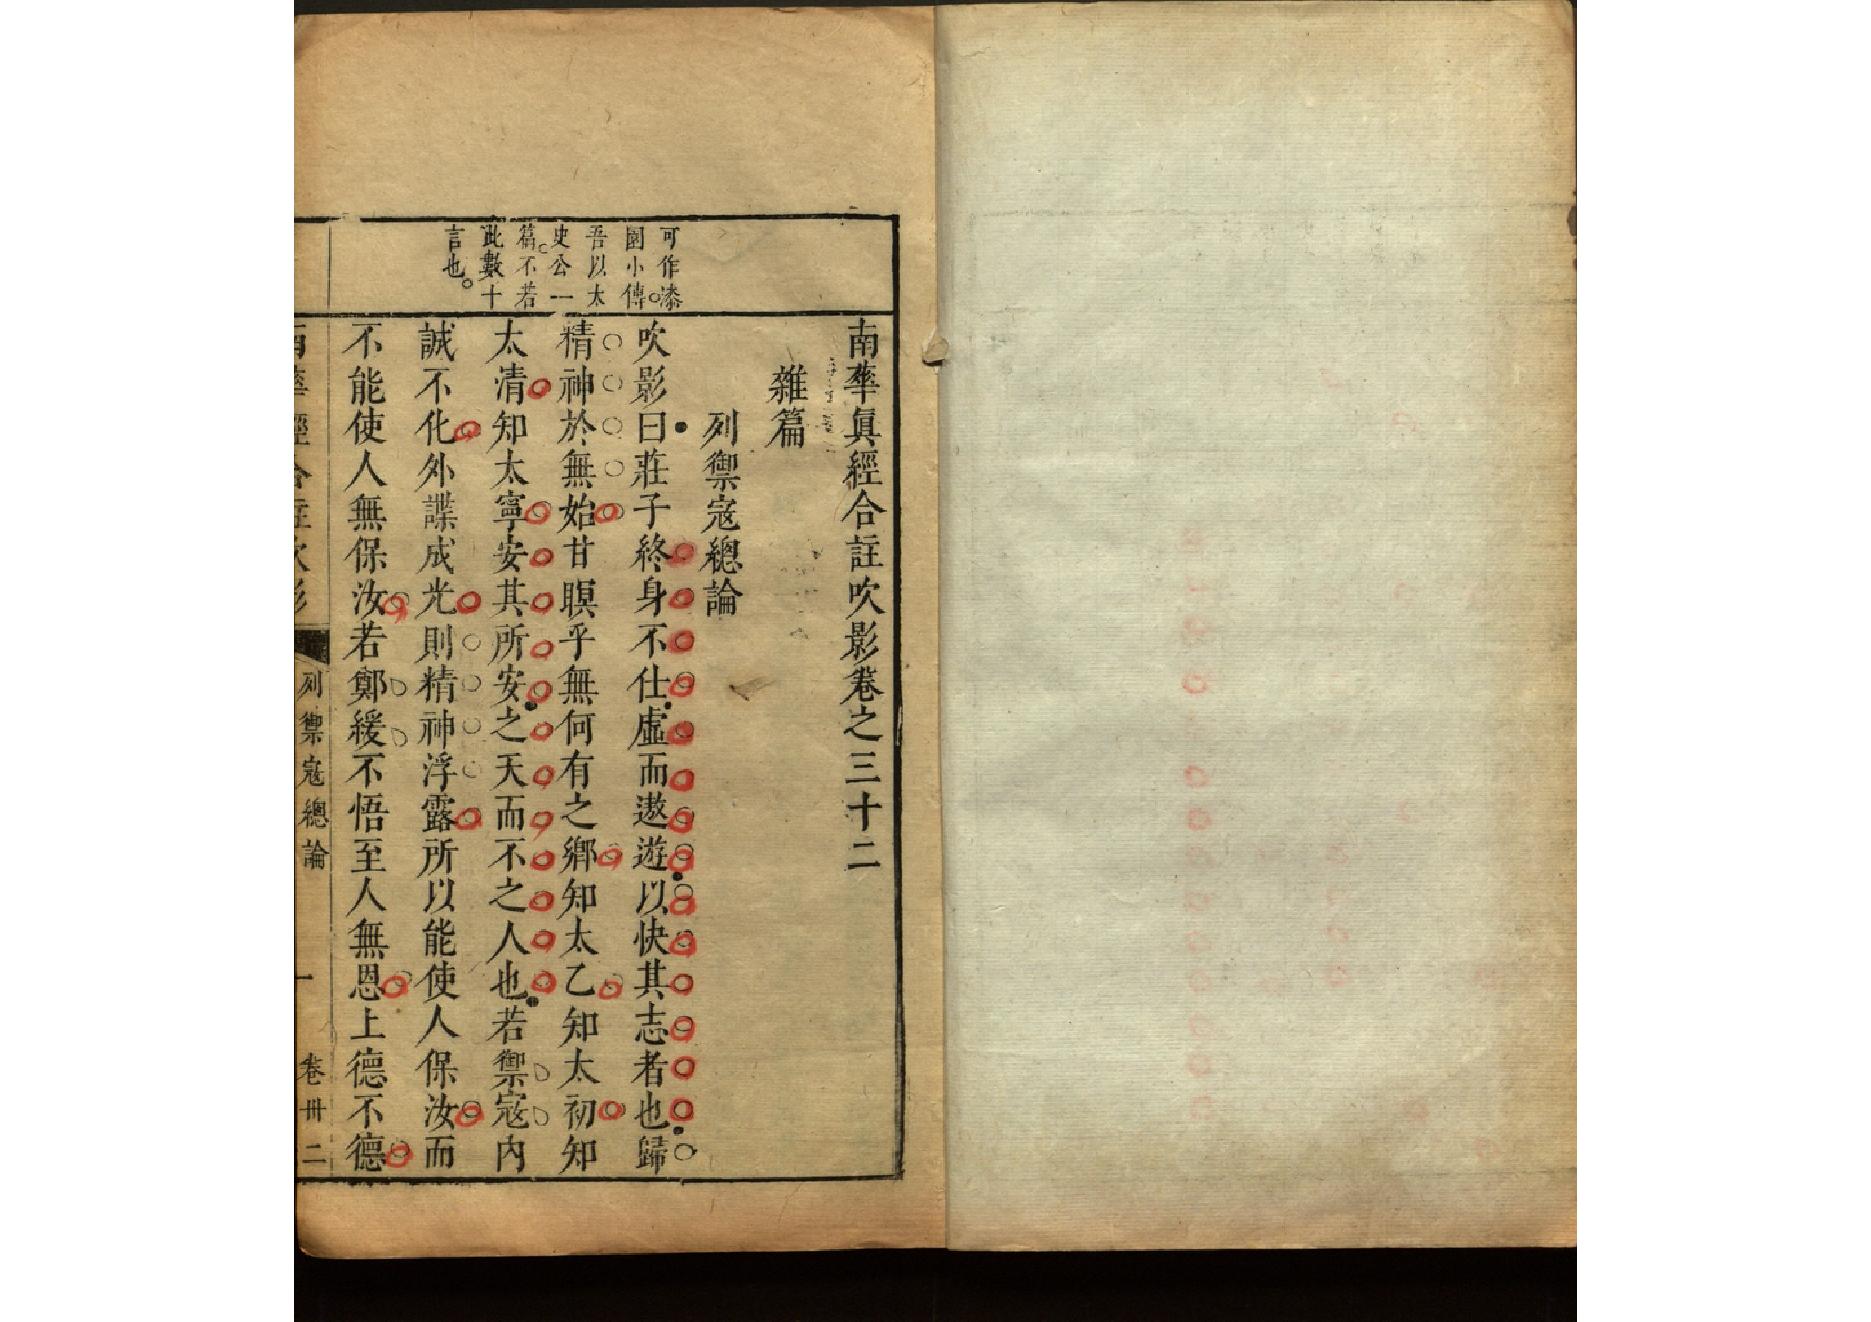 南華眞經合註吹影卷之三十二
雜篇
列禦寇總論
吹影曰莊子終身不仕虛而遨遊以快其志者也歸
精神於無始甘瞑乎無何有之鄉知太乙知太初知
太清知太寧安其所安之天而不之人也若禦寇內
誠不化外諜成光則精神浮露所以能使人保汝而
不能使人無保汝若鄭緩不悟至人無恩上德不德
可作漆
園小傳
吾以太
史公一
篇不若
此數十
言也
南華經合註吹影 列禦寇總論 一 卷卅二